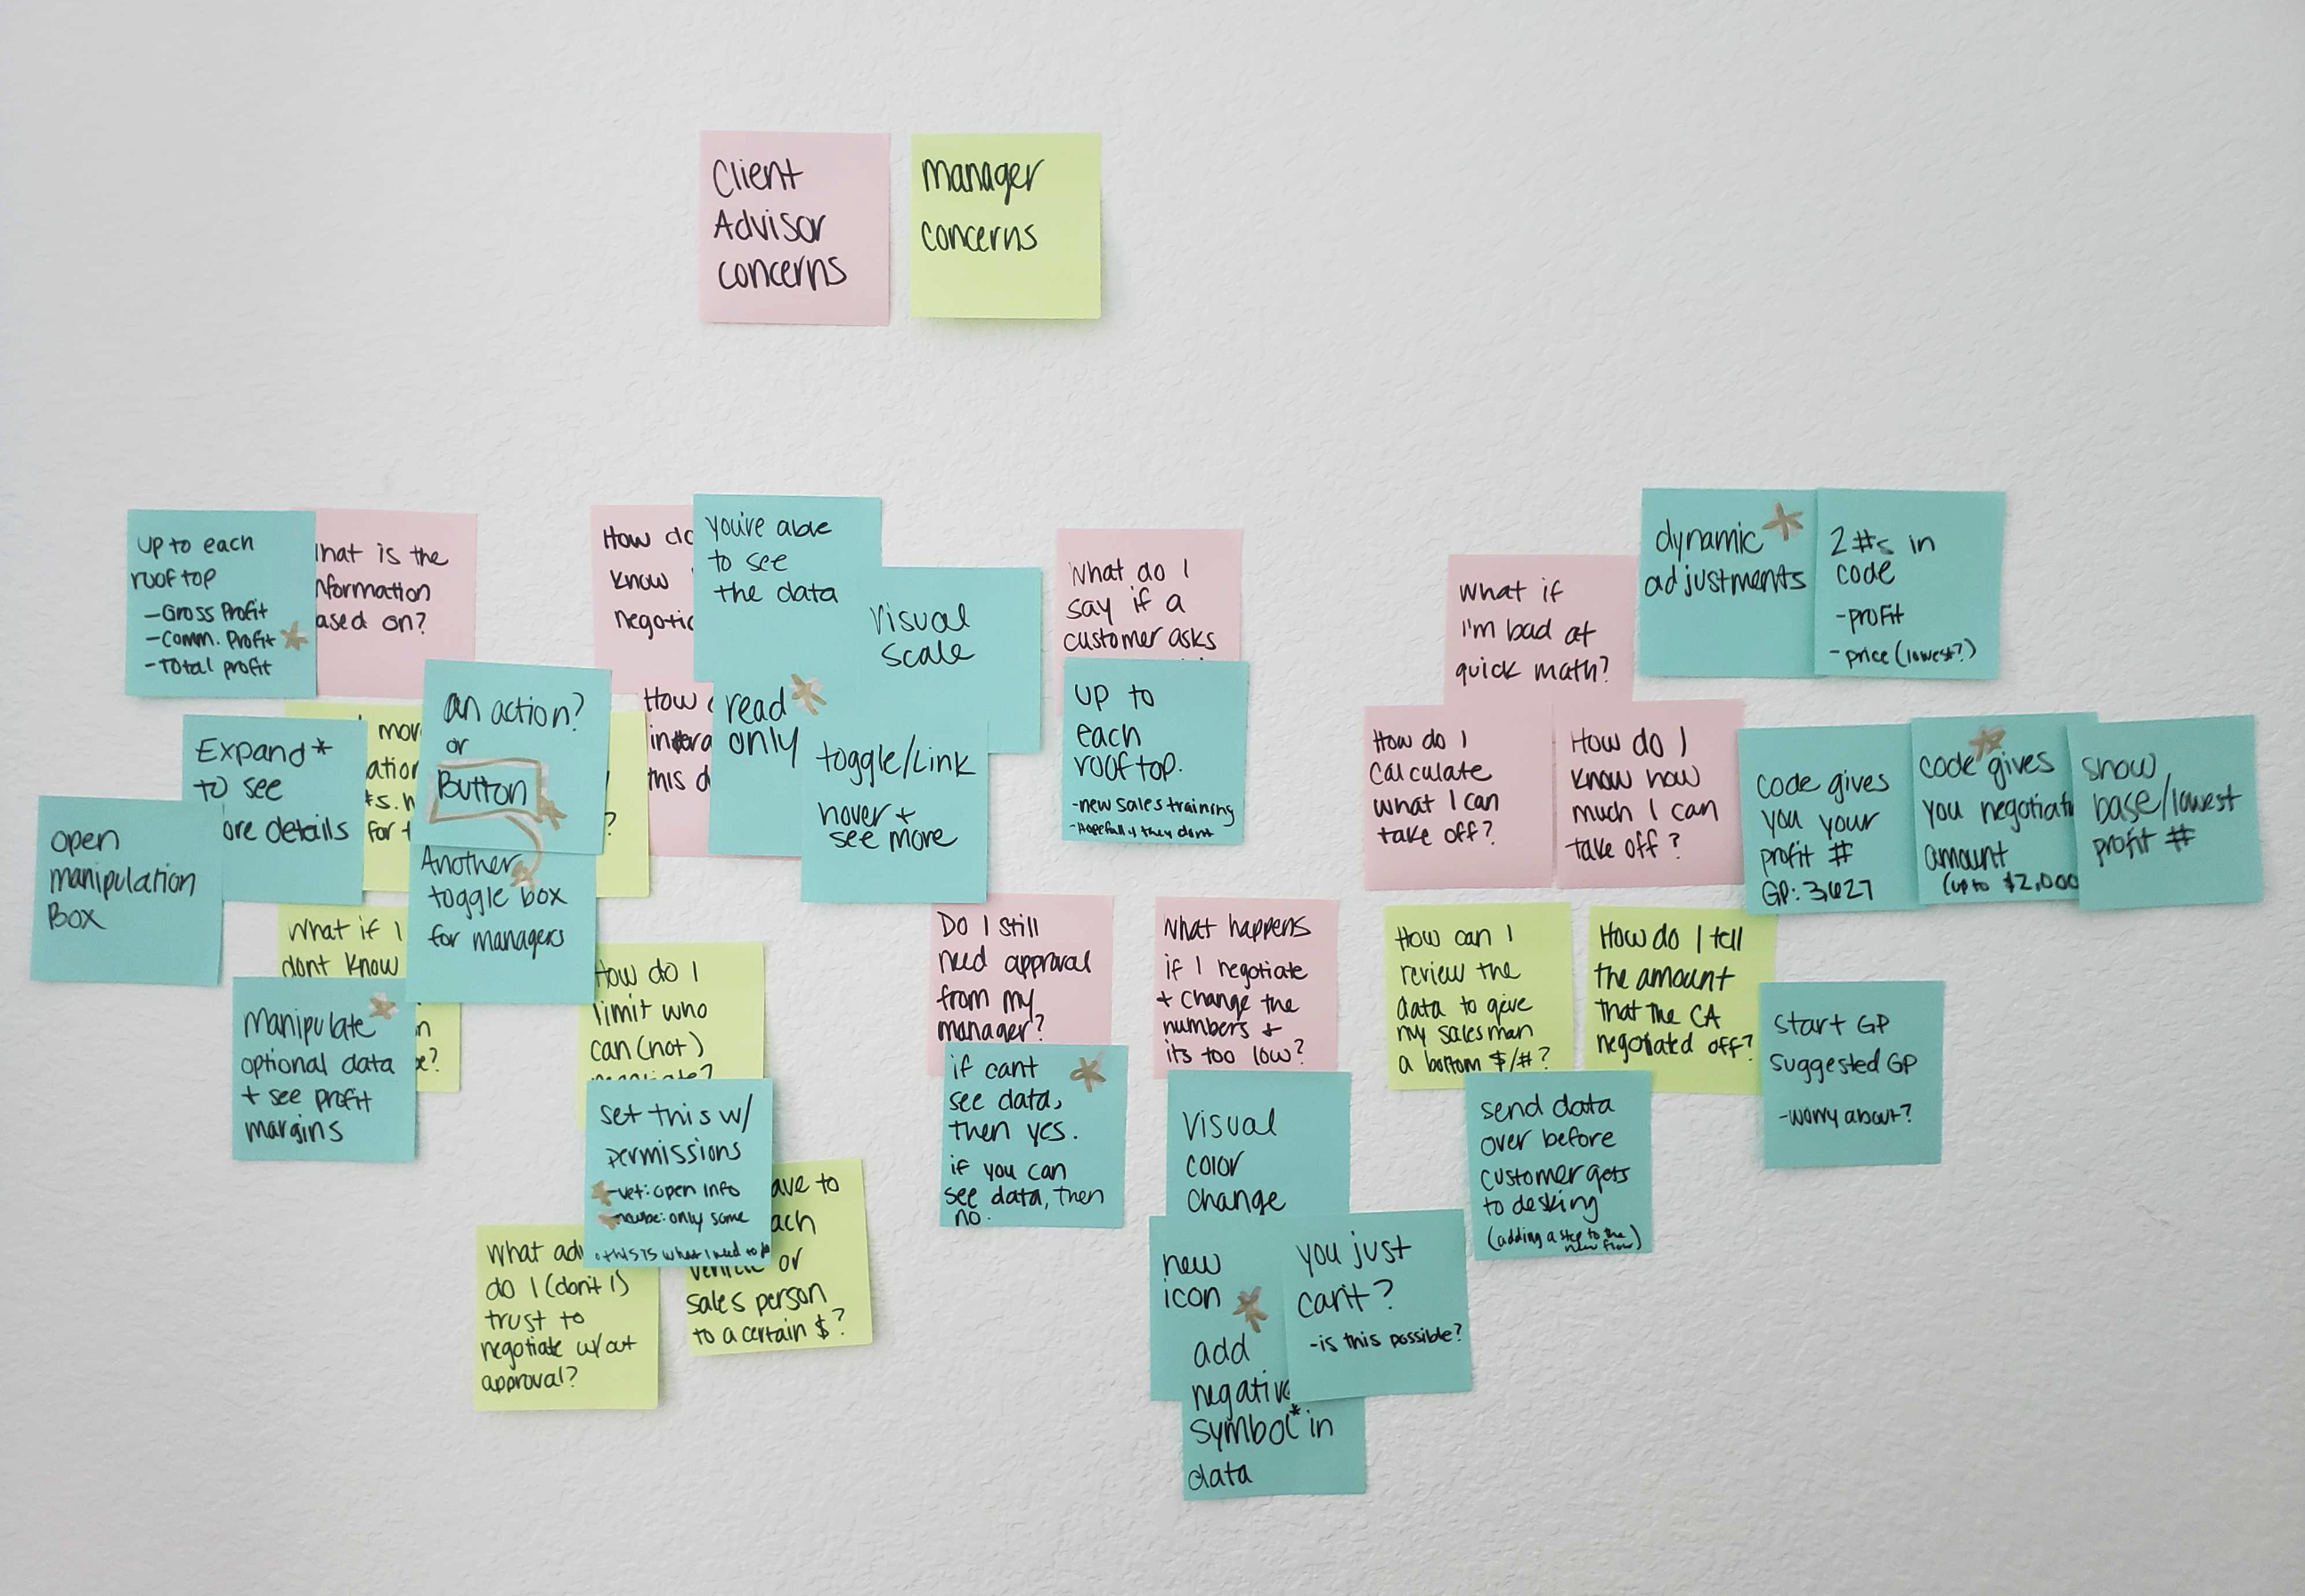 Client
Advisor
concerns
manager
concerns
up to each
rooftop
-Gross Profit
-Comm. Profit
-Total profit
hat is the
nformation
ased on?
How do
know
negotia
you're able
to see
the data
Visual
scale
What do I
say if a
customer asks
up to
each
rooftop.
-new sales training
-Hopefully they dont
What if
I'm bad at
quick math?
dynamic
adjustments
2 #s in
code
-profit
-price (lowest?)
Expand*
to see
ore details
open
manipulation
Box
mor
ation
#s.
for t
an action?
or
Button
?
Another
toggle box
for managers
How
this d
read
only
toggle/Link
hover +
see more
How do I
calculate
what I can
take off?
How do I
know how
much I can
take off?
code gives
you your
profit #
GP: 3,627
code gives
you negotiati
amount
(up to $2,000
show
base/lowest
profit #
What if I
dont know
n
e?
Manipulate
optional data
+ see profit
margins
How do I
limit who
can (not)
set this w/
permissions
-vet: open info
-maybe: only some
this is what I need to
What ad
do I (don't I)
trust to
negotiate w/out
approval?
ave to
ach
vehicle or
sales person
to a certain $?
Do I still
need approval
from my
manager?
if cant
see data,
then yes.
if you can
see data, then
no.
What happens
if I negotiate
+ change the
numbers +
its too low?
Visual
color
change
new
icon
you just
can't?
-is this possible?
add
negative
symbol* in
data
How can I
review the
data to give
my salesman
a bottom $/#?
How do I tell
the amount
that the CA
negotiated off?
send data
over before
customer gets
to desking
(adding a step to the
new flow)
start GP
suggested GP
-worry about?